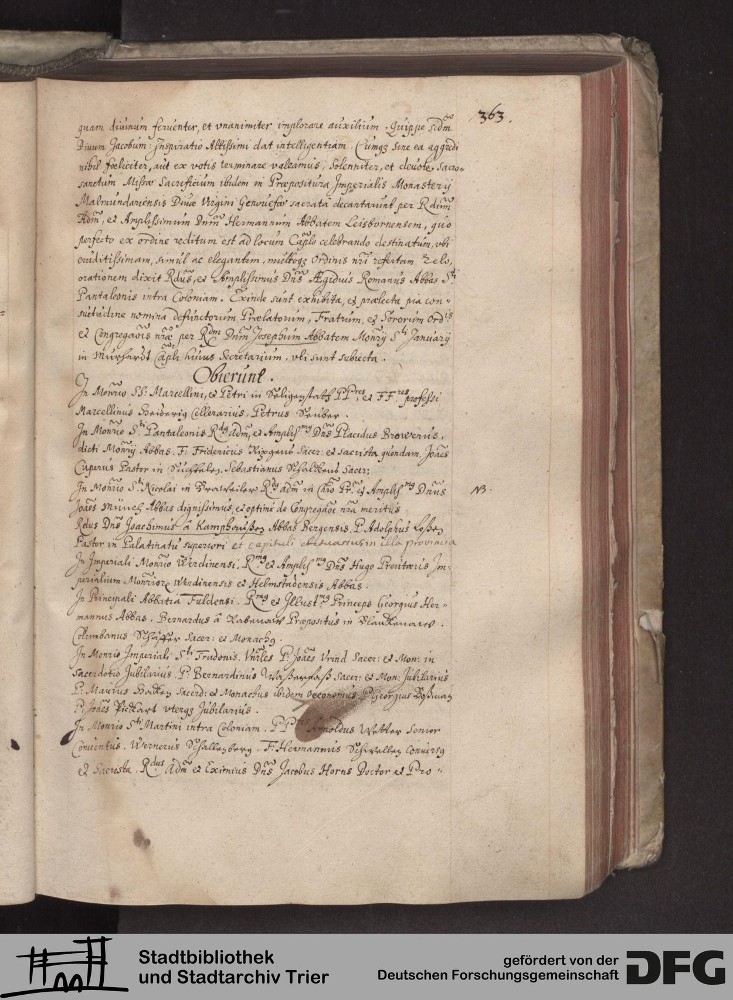 363.
quam diuinum feruenter, et vnanimiter implorare auxilium. Quippe scdm̄
Diuum Jacobum: Inspiratio Altissimi dat intelligentiam. Cumq3 sine ea aggredi
nihil foeliciter, aut ex votis terminare valeamus, Solenniter, et deuote, Sacro-
sanctum Missae Sacrificium ibidem in Praepositura Imperialis Monasterij
Malmundariensis Divae Virgini Genouefae sacrata decantarunt per R dum
Adm̄, et Amplissimum Dnūm Hermannum Abbatem Leisbornensem, quo
perfecto ex ordine reditum est ad locum Caplo celebrando destinatum, vbi
eruditissimam, simul ac elegantem, multoq3 Ordinis nr̄i refertam zelo,
orationem dixit Rdus, et Amplissimus Dn̄s Ægidius Romanus Abbas Sti
Pantaleonis intra Coloniam. Exinde sunt exhibita, et praelecta pia con-
suetudine nomina defunctorum Praelatorum, Fratrum, et Sororum Ordis
et Congregaōis nr̄ae per Rdm Dnūm Josephum Abbatem Monrij Sti Januarij
in Murhardt Capli huius Secretarium, vti sunt subiecta.
Obierunt.
In Monrio SS. Marcellini, et Petri in Seligenstatt PP. res, et FF. res professi
Marcellinus Cellerarius, Petrus
In Monrio Sti Pantaleonis Rdus adm̄, et Amplis mus Dn̄s Placidus Browerus,
dicti Monrij Abbas. F. Fridericus Sacer: et Sacrista quondam, Joaēs
Cuperus Pastor in Süchtelen, Sebastianus Sacer:
In Monrio S. Nicolai in Braweiler Rdus adm̄ in Chro Pr. et Amplis mus Dnūs
NB.
Joaēs Münch Abbas dignissimus, et optime de Congregāoe nr̄a meritus.
Rdus Dn̄s Joachimus à Kamphousen Abbas Bergensis. P. Adolphus
Pastor in Palatinatu superiori et capituli in illa prouincia
In Imperiali Monrio Werdinensi, R mus et Amplis mus Dn̄s Hugo Im-
perialium Monriorz Werdinensis et Helmstadensis Abbas.
In Principali Abbatia Fuldensi. R mus et Illust mus Princeps Georgius Her-
mannus Abbas. Bernardus à Praepositus in Blanckenaw.
Columbanus Sacer: et Monachg.
In Monrio Imperiali Sti Trudonis. P. Joaēs Vrind Sacer: et Mon: in
Sacerdotio Jubilarius. P. Bernardinus Sacer: et Mon: Jubilarius
P. Maurus Sacerd: et Monachus ibidem oeconomus, P. Georgius
P. Joaēs Pickart vterq3 Jubilarius.
In Monrio Sti Martini intra Coloniam. PP. Arnoldus Senior
Conuentus. Wernerus Schallenberg. F. Hermannus Conuersg
et Sacrista. Rdus Adm̄ et Eximius Dn̄s Jacobus Horns Doctor et Pro-
Stadtbibliothek
und Stadtarchiv Trier
gefördert von der
Deutschen Forschungsgemeinschaft
DFG